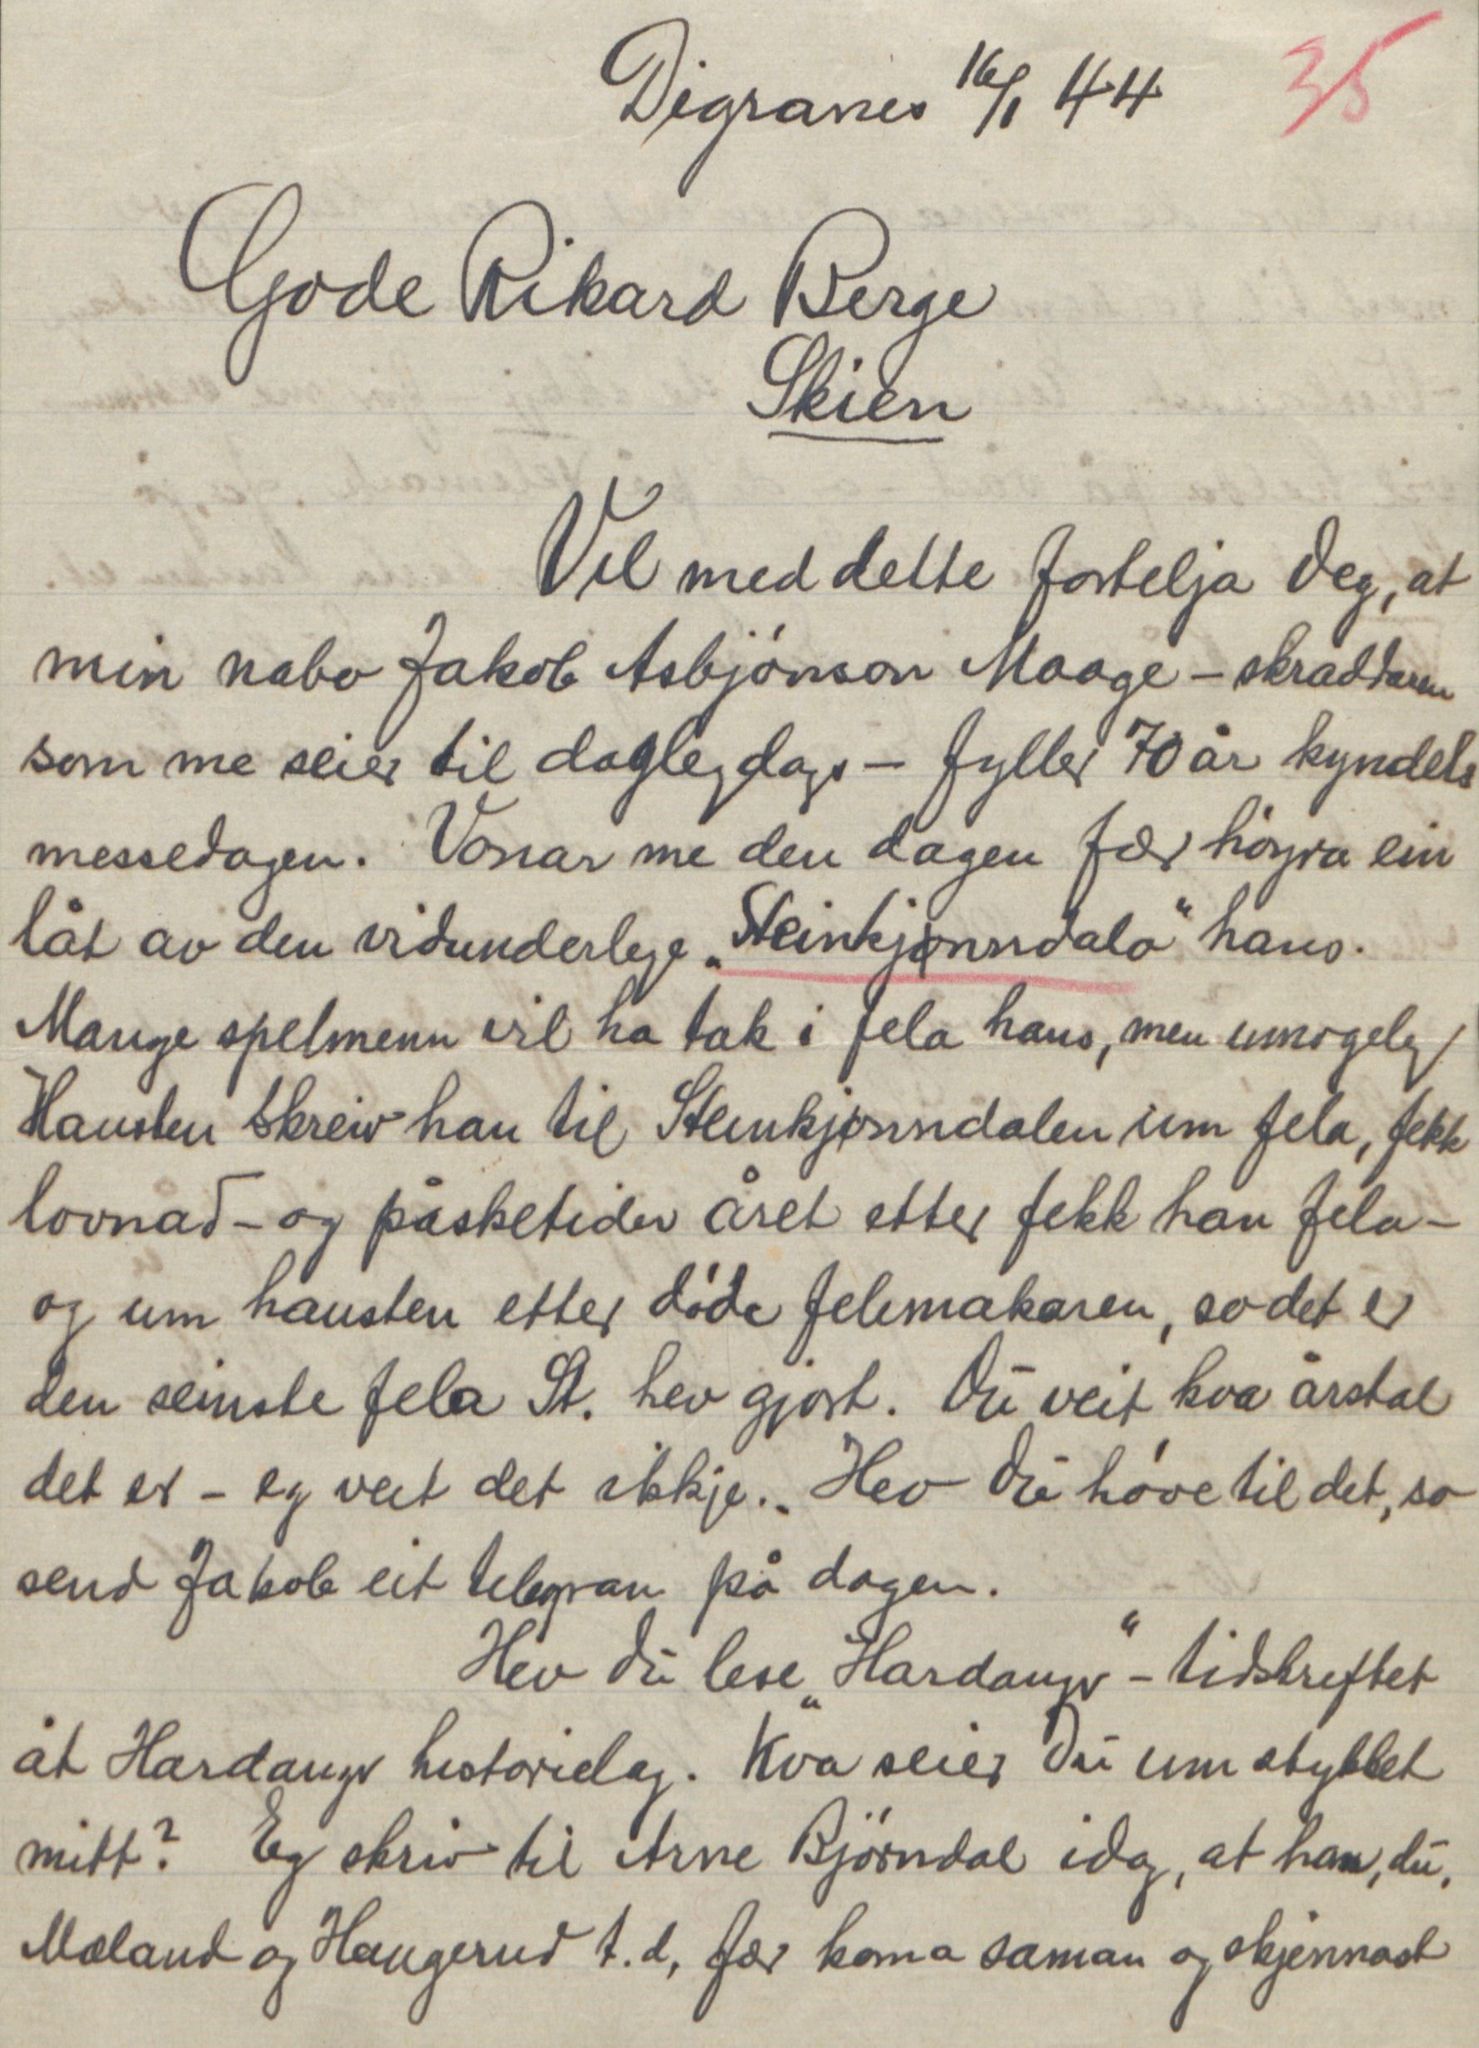 Digranes 16/1 44 35
Gode Rikard Berge
Skien
Vil med dette fortelja Deg, at
min nabo Jakob Asbjönson Maage – skraddaren
som me seier til daglegdags – fyller 70 år kyndels
messedagen. Vonar me den dagen fær höyra ein
låt av den vidunderlege „Steinkjønndala" hans.
Mange spelmenn vil ha tak i fela hans, men umogeleg
Hausten skreiv han til Steinkjønndalen um fela, fekk
lovnad – og påsketider året etter fekk han fela –
og um hausten etter döde felemakaren, so det er
den seinste fela St. hev gjort. Du veit kva årstal
det er – eg veit det ikkje. Hev Du höve til det, so
send Jakob eit telegram på dagen.
Hev du lese „Hardanger" – tidskriftet
åt Hardanger historielag. Kva seier Du um stykket
mitt? Eg skriv til Arne Björndal idag, at han, du,
Mæland og Haugerud t.d, fær koma saman og skjennast